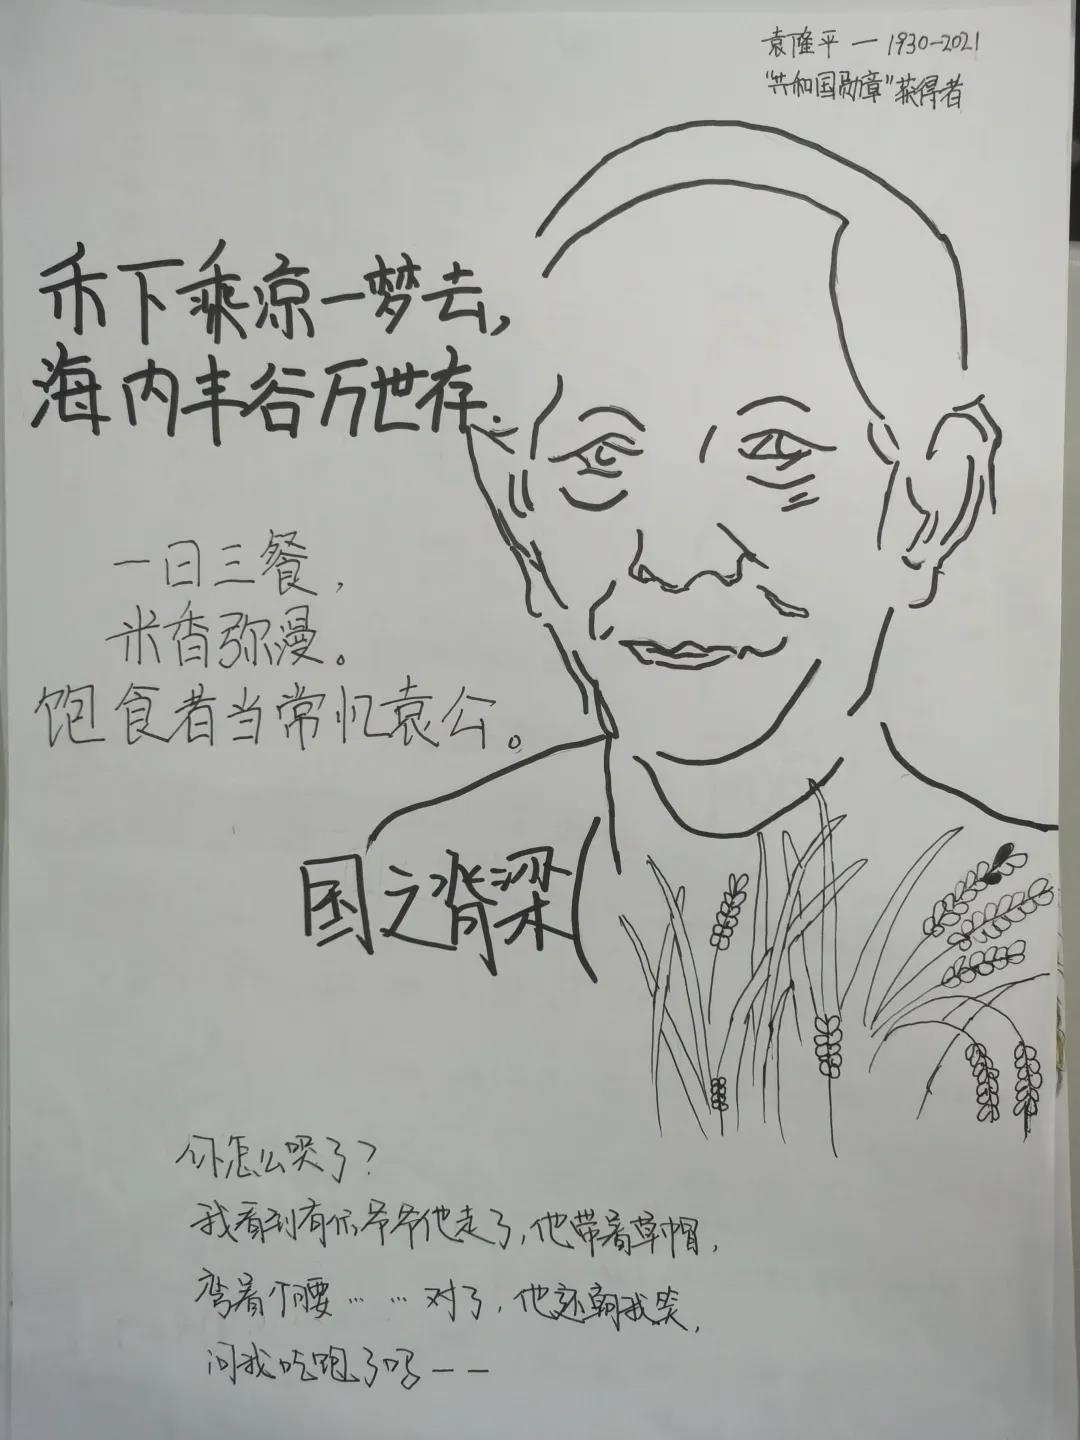 袁隆平 — 1930-2021
"共和国勋章"获得者
禾下乘凉一梦去,
海内丰谷万世存.
一日三餐,
米香弥漫。
饱食者当常忆袁公。
国之脊梁
你怎么哭了?
我看到有位爷爷他走了,他带着草帽,
弯着个腰……对了,他还朝我笑,
问我吃饱了吗——